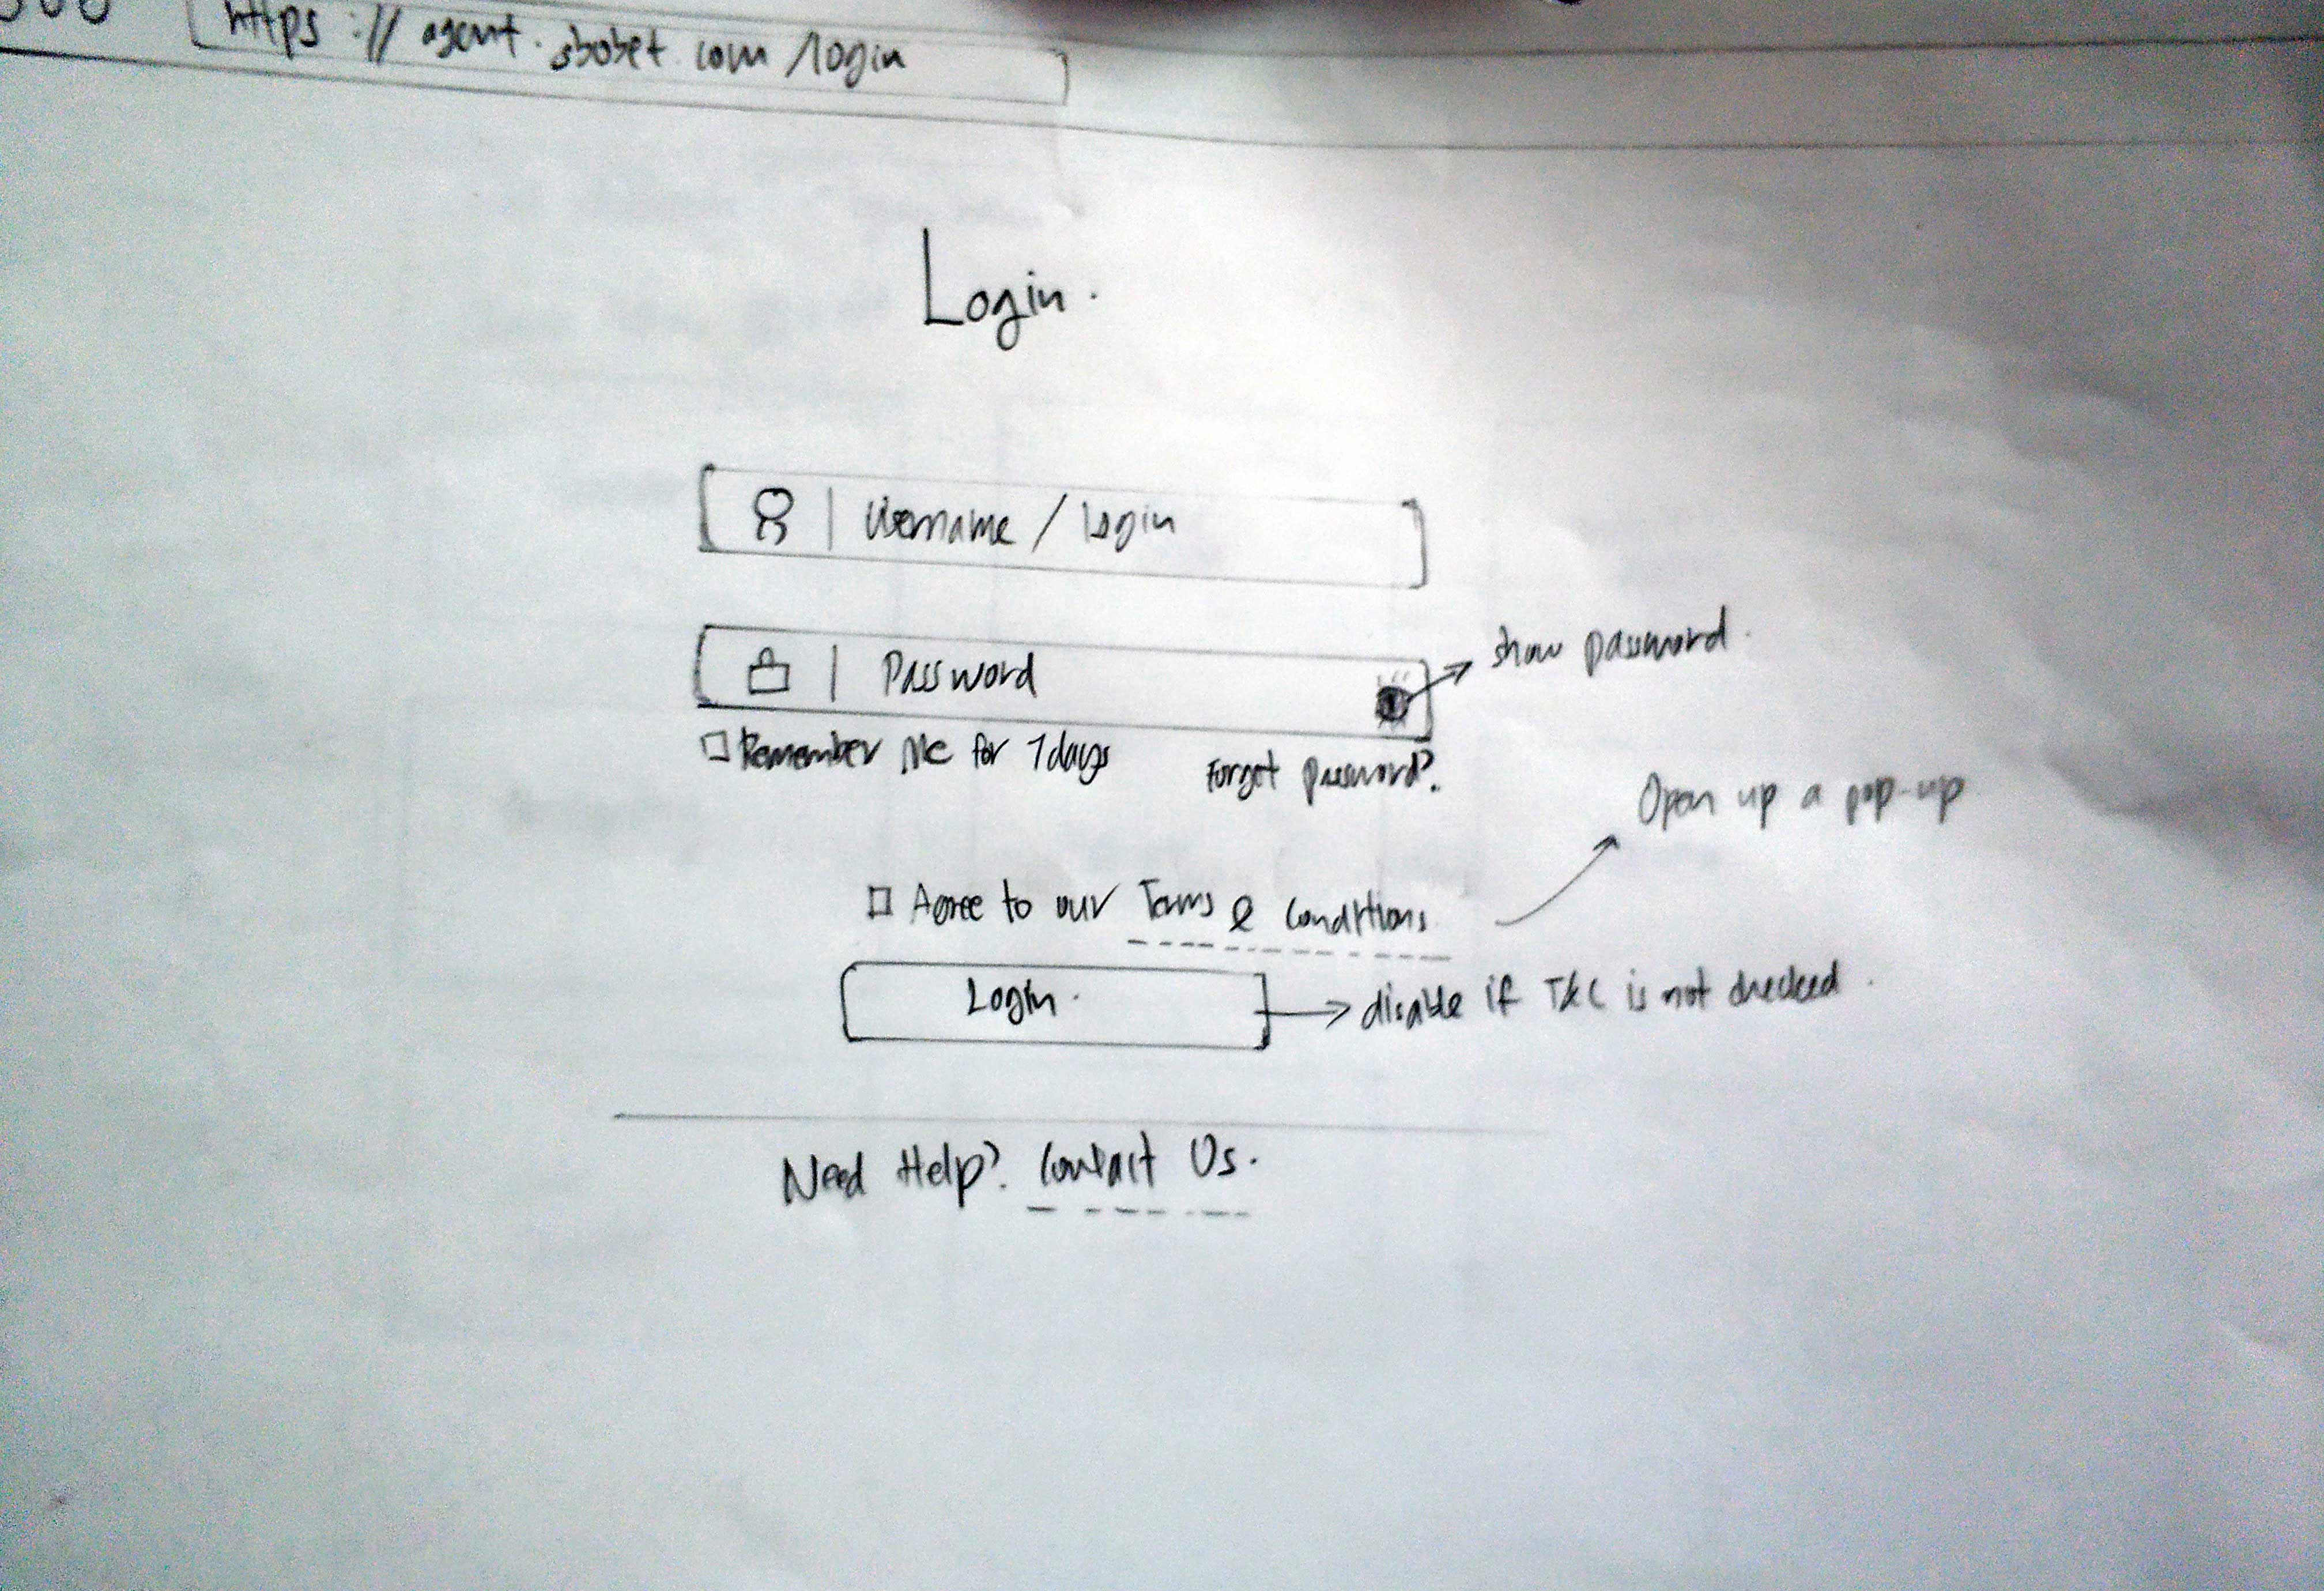 https://agent.sbobet.com/login
Login.
Username / Login
Password
show password.
Remember Me for 7days
Forgot password?
Open up a pop-up
Agree to our Terms & Conditions
Login.
disable if T&C is not checked.
Need Help? Contact Us.